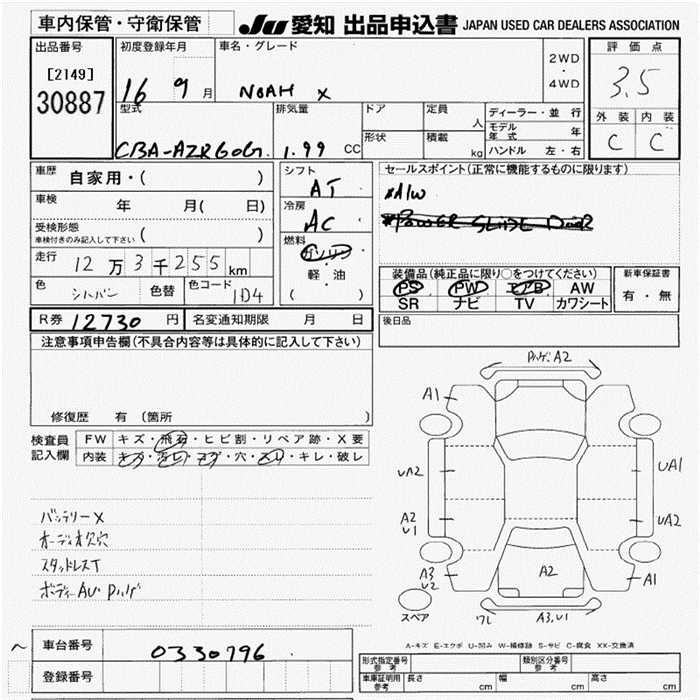 車内保管・守衛保管
JU 愛知 出品申込書 JAPAN USED CAR DEALERS ASSOCIATION
出品番号
[2149]
30887
初度登録年月
16 9 月
車名・グレード
NOAH X
2WD
・
4WD
評価点
3.5
外装 内装
C C
型式
CBA-AZR60G
排気量
1.99 CC
ドア
形状
定員
人
積載
kg
ディーラー・並行
モデル年式 年
ハンドル 左・右
車歴 自家用・( )
車検 年 月( 日)
受検形態
車検付きのみ記入して下さい ( )
走行 12万3千255km
色 シルバー 色替 色コード 1D4
シフト
AT
冷房
AC
燃料
ガソリン
軽・油
( )
セールスポイント(正常に機能するものに限ります)
*A/W
*POWER SLIDE DOOR
装備品(純正品に限り○をつけてください)
PS PW エアB AW
SR ナビ TV カワシート
新車保証書
有・無
R券 12730 円 名変通知期限 月 日
後日品
注意事項申告欄(不具合内容等は具体的に記入して下さい)
修復歴 有(箇所 )
検査員記入欄
FW キズ・飛石・ヒビ割・リペア跡・X要
内装 キズ・汚レ・コゲ・穴・スレ・キレ・破レ
バッテリーX
オーディオ欠穴
スタッドレスT
ボディーAU
A2
A1
UA2
UA1
A2
U1
UA2
A3
U2
A2
A1
スペア
ワレ
A3,U1
A-キズ E-エクボ U-凹み W-補修跡 S-サビ C-腐食 XX-交換済
車台番号 0330796
登録番号
形式指定番号 参考
類別区分番号 参考
車庫証明用 参考 長さ cm 幅 cm 高さ cm